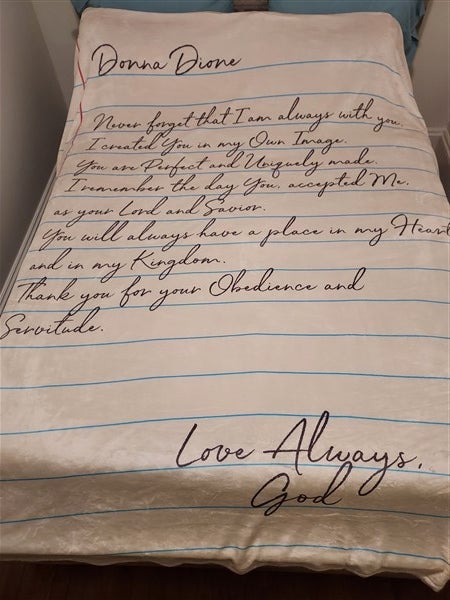 Donna Dione
Never forget that I am always with you.
I created You in my Own Image.
You are Perfect and Uniquely made.
I remember the day You, accepted Me,
as your Lord and Savior.
You will always have a place in my Heart
and in my Kingdom.
Thank you for your Obedience and
Servitude.
Love Always,
God